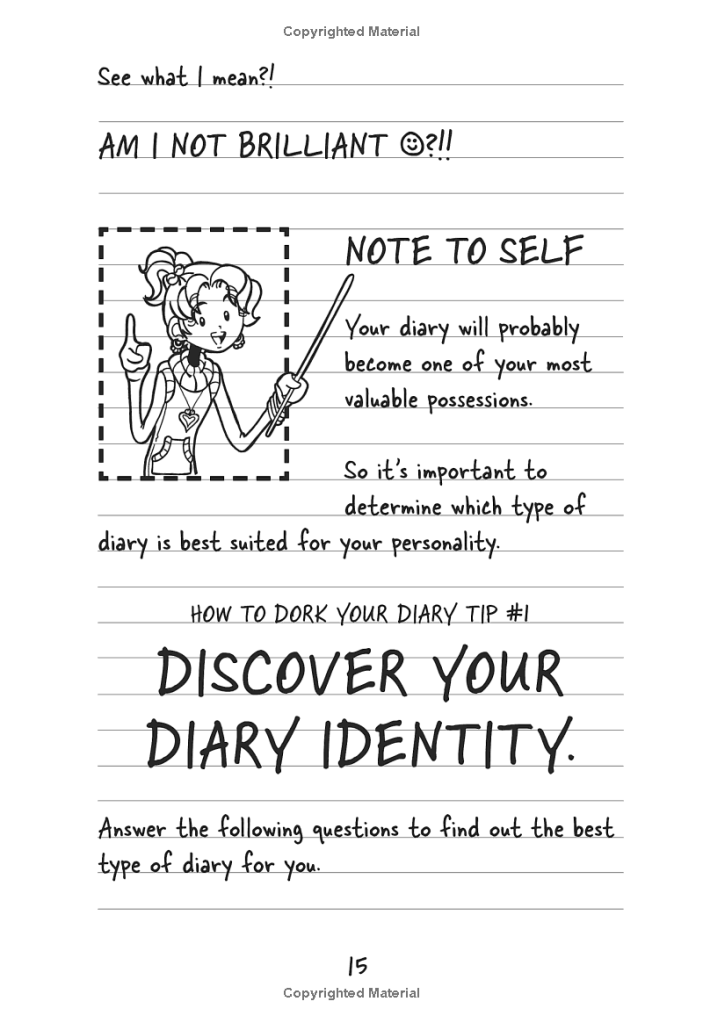 Copyrighted Material
See what I mean?!
AM I NOT BRILLIANT ☺?!!
NOTE TO SELF
Your diary will probably
become one of your most
valuable possessions.
So it's important to
determine which type of
diary is best suited for your personality.
HOW TO DORK YOUR DIARY TIP #1
DISCOVER YOUR
DIARY IDENTITY.
Answer the following questions to find out the best
type of diary for you.
15
Copyrighted Material